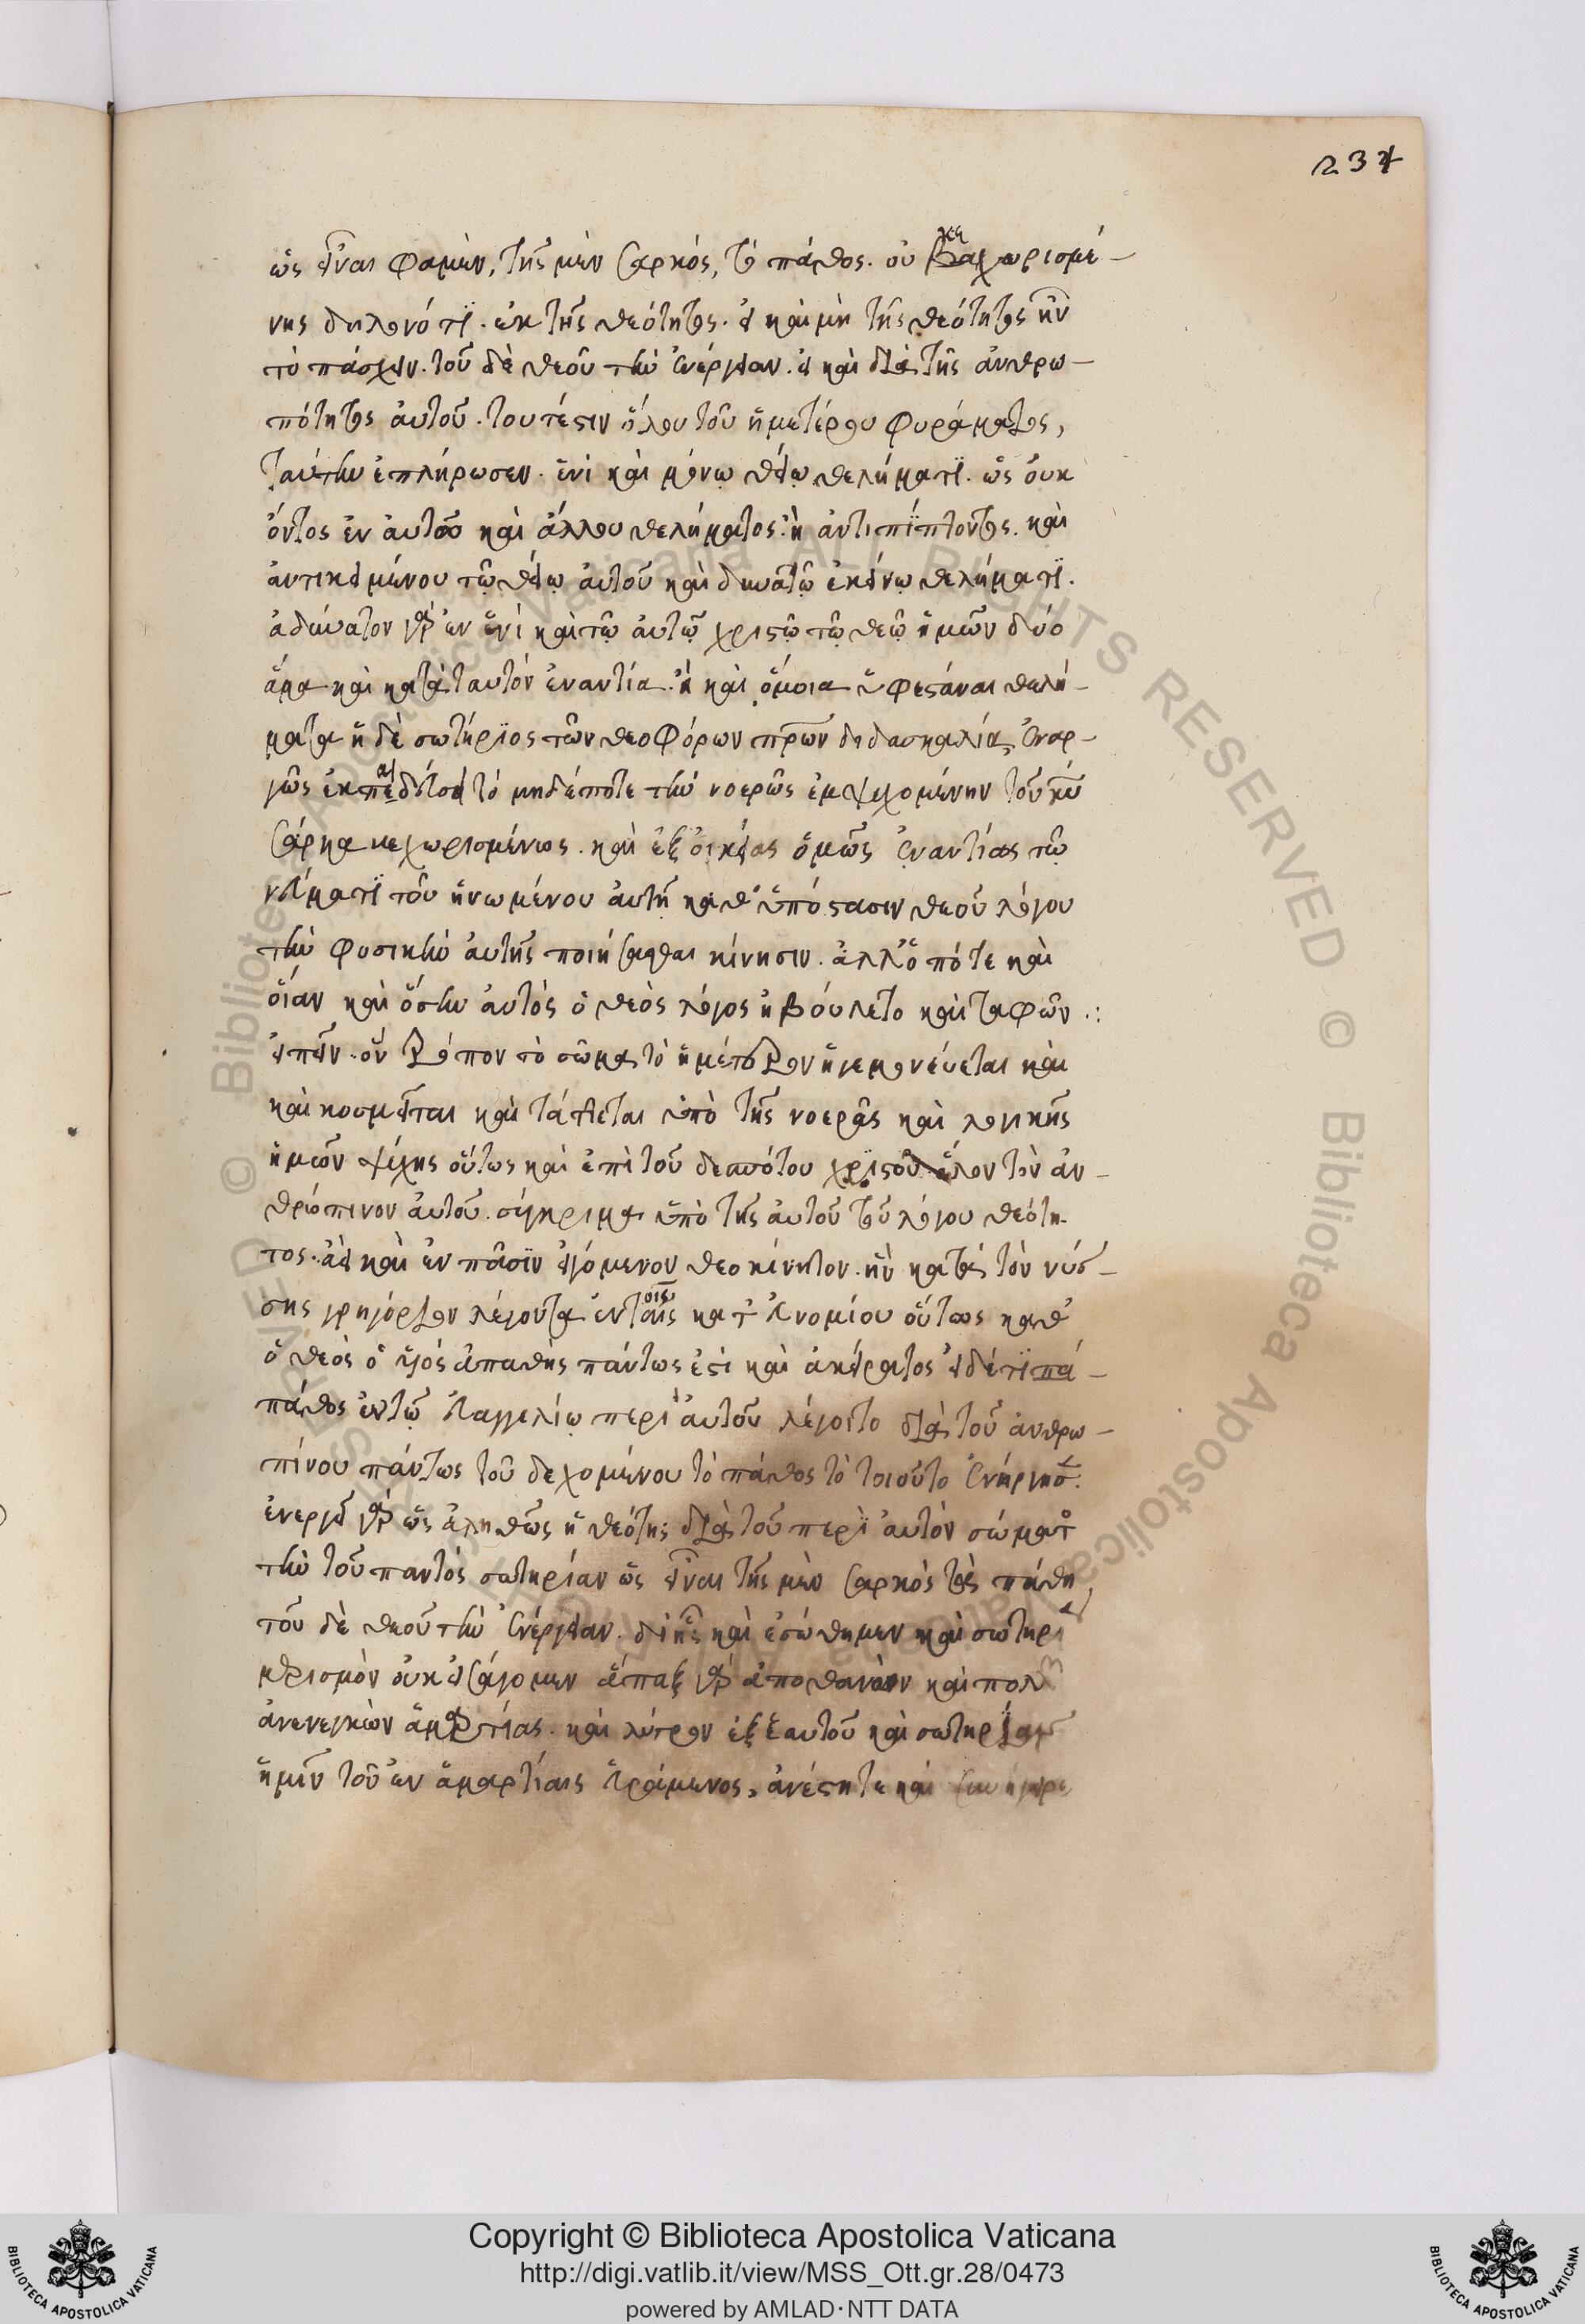 237
ὡς εἶναι φαμὲν, τῆς μὲν σαρκός, τὸ πάθος. οὐ κεχωρισμέ-
νης δηλονότι. ἐκ τῆς θεότητος. εἰ καὶ μὴ τῆς θεότητος ἦν
τὸ πάσχειν. τοῦ δὲ θεοῦ τὴν ἐνέργειαν. εἰ καὶ διὰ τῆς ἀνθρω-
πότητος αὐτοῦ. τουτέστιν ὅλου τοῦ ἡμετέρου φυράματος,
ταύτην ἐπλήρωσεν. ἑνὶ καὶ μόνῳ θείῳ θελήματι. ὡς οὐκ
ὄντος ἐν αὐτῷ καὶ ἄλλου θελήματος. ἢ ἀντιπίπτοντος. καὶ
ἀντικειμένου τῷ θείῳ αὐτοῦ καὶ δυνατῷ ἐκείνῳ θελήματι.
ἀδύνατον γὰρ ἐν ἑνὶ καὶ τῷ αὐτῷ χριστῷ τῷ θεῷ ἡμῶν δύο
ἅμα καὶ κατὰ ταυτὸν ἐναντία. ἢ καὶ ὅμοια ὑφεστάναι θελή-
ματα ἡ δὲ σωτήριος τῶν θεοφόρων πρων διδασκαλία, ἐναρ-
γῶς ἐκπαιδεύει τὸ μηδέποτε τὴν νοερῶς ἐμψυχομένην τοῦ κυ
σάρκα κεχωρισμένως. καὶ ἐξ οἰκείας ὁρμῆς ἐναντίως τῷ
νεύματι τοῦ ἡνωμένου αὐτῇ καθ' ὑπόστασιν θεοῦ λόγου
τὴν φυσικὴν αὐτῆς ποιήσασθαι κίνησιν. ἀλλ' ὁπότε καὶ
οἵαν καὶ ὅσην αὐτὸς ὁ θεὸς λόγος ἠβούλετο καὶ σαφῶν .:
εἰπεῖν. ὃν τρόπον τὸ σῶμα τὸ ἡμέτερον ἡγεμονεύεται καὶ
καὶ κοσμεῖται καὶ τάττεται ὑπὸ τῆς νοερᾶς καὶ λογικῆς
ἡμῶν ψυχῆς οὕτως καὶ ἐπὶ τοῦ δεσπότου χριστοῦ ὅλον τὸν ἀν-
θρώπινον αὐτοῦ. σύγκριμα ὑπὸ τῆς αὐτοῦ τοῦ λόγου θεότη-
τος. ἀεὶ καὶ ἐν πᾶσιν ἀγόμενον θεοκίνητον. ἦν κατὰ τὸν νύσ-
σης γρηγόριον λέγοντα ἐν τοῖς κατ εὐνομίου οὕτως καθ'
ὃ θεὸς ὁ υἱός ἀπαθὴς πάντως ἐστὶ καὶ ἀκήρατος εἰ δέ τι πά-
πάθος ἐν τῷ εὐαγγελίῳ περὶ αὐτοῦ λέγοιτο διὰ τοῦ ἀνθρω-
πίνου πάντως τοῦ δεχομένου τὸ πάθος τὸ τοιοῦτο ἐνήργησ.
ἐνεργεῖ γὰρ ὡς ἀληθῶς ἡ θεότης διὰ τοῦ περὶ αὐτὸν σώματ
τὴν τοῦ παντὸς σωτηρίαν ὡς εἶναι τῆς μὲν σαρκὸς τὸ πάθη,
τοῦ δὲ θεοῦ τὴν ἐνέργειαν. δι ἧς καὶ ἐσώθημεν καὶ σωτηρι
μερισμὸν οὐκ εἰσάγομεν ἅπαξ γὰρ ἀποθανὼν καὶ πολ
ἀνενεγκὼν ἁμαρτίας. καὶ λύτρον ἐξ ἑαυτοῦ καὶ σωτηρίαν
ἡμῖν τοῦ ἐν ἁμαρτίαις εὑράμενος, ἀνέστη τε καὶ συνήγειρε
Copyright © Biblioteca Apostolica Vaticana
http://digi.vatlib.it/view/MSS_Ott.gr.28/0473
powered by AMLAD·NTT DATA